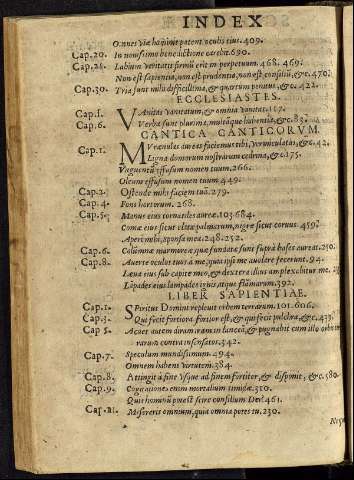 INDEX
Omnes viæ hominis patent oculis eius. 409.
Cap. 20. In nouissimo benedictione carebit. 690.
Cap. 21. Labium veritatis firmũ erit in perpetuum. 468. 469.
Non est sapientia, non est prudentia, non est consiliũ, &c. 470.
Cap. 30. Tria sunt mihi difficillima, & quartum penitus, &c. 422.
ECCLESIASTES.
Cap. 1. VAnitas vanitatum, & omnia vanitas. 167.
Cap. 6. Verba sunt plurima, multáque habentia, &c. 83.
CANTICA CANTICORVM.
Cap. 1. MVrænulas aureas faciemus tibi, vermiculatas, &c. 42.
Ligna domorum nostrarum cedrina, &c. 175.
Vnguentũ effusum nomen tuum. 266.
Oleum effusum nomen tuum 449.
Cap. 2. Ostende mihi faciem tuã. 279.
Cap. 4. Fons hortorum. 268.
Cap. 5. Manus eius tornatiles aureæ. 103. 684.
Comæ eius sicut elatæ palmarum, nigræ sicut coruus. 459.
Aperi mihi, sponsa mea. 248. 252.
Cap. 6. Columnæ marmoreæ quæ fundatæ sunt suprà bases aureas. 250.
Cap. 8. Auerte oculos tuos à me, quia ipsi me auolare fecerunt. 94.
Læua eius sub capite meo, & dextera illius amplexabitur me.
Lãpades eius lampades ignis, atque flãmarum. 392.
LIBER SAPIENTIAE.
Cap. 1. SPiritus Domini repleuit orbem terrarum. 101. 606.
Cap. 3. Qui fecit fortiora fortior est, & qui fecit pulchra, &c. 439.
Cap. 5. Acuet autem diram iram in lanceã, & pugnabit cum illo orbis terrarum contra insensatos. 342.
Cap. 7. Speculum mundissimum. 494.
Omnem habens virtutem. 384.
Cap. 8. Attingit à fine vsque ad finem fortiter, & disponit, &c. 580.
Cap. 9. Cogitationes enim mortalium timidæ. 310.
Quis hominũ potest scire consilium Dei? 461.
Cap. 11. Misereris omnium, quia omnia potes tu. 230.